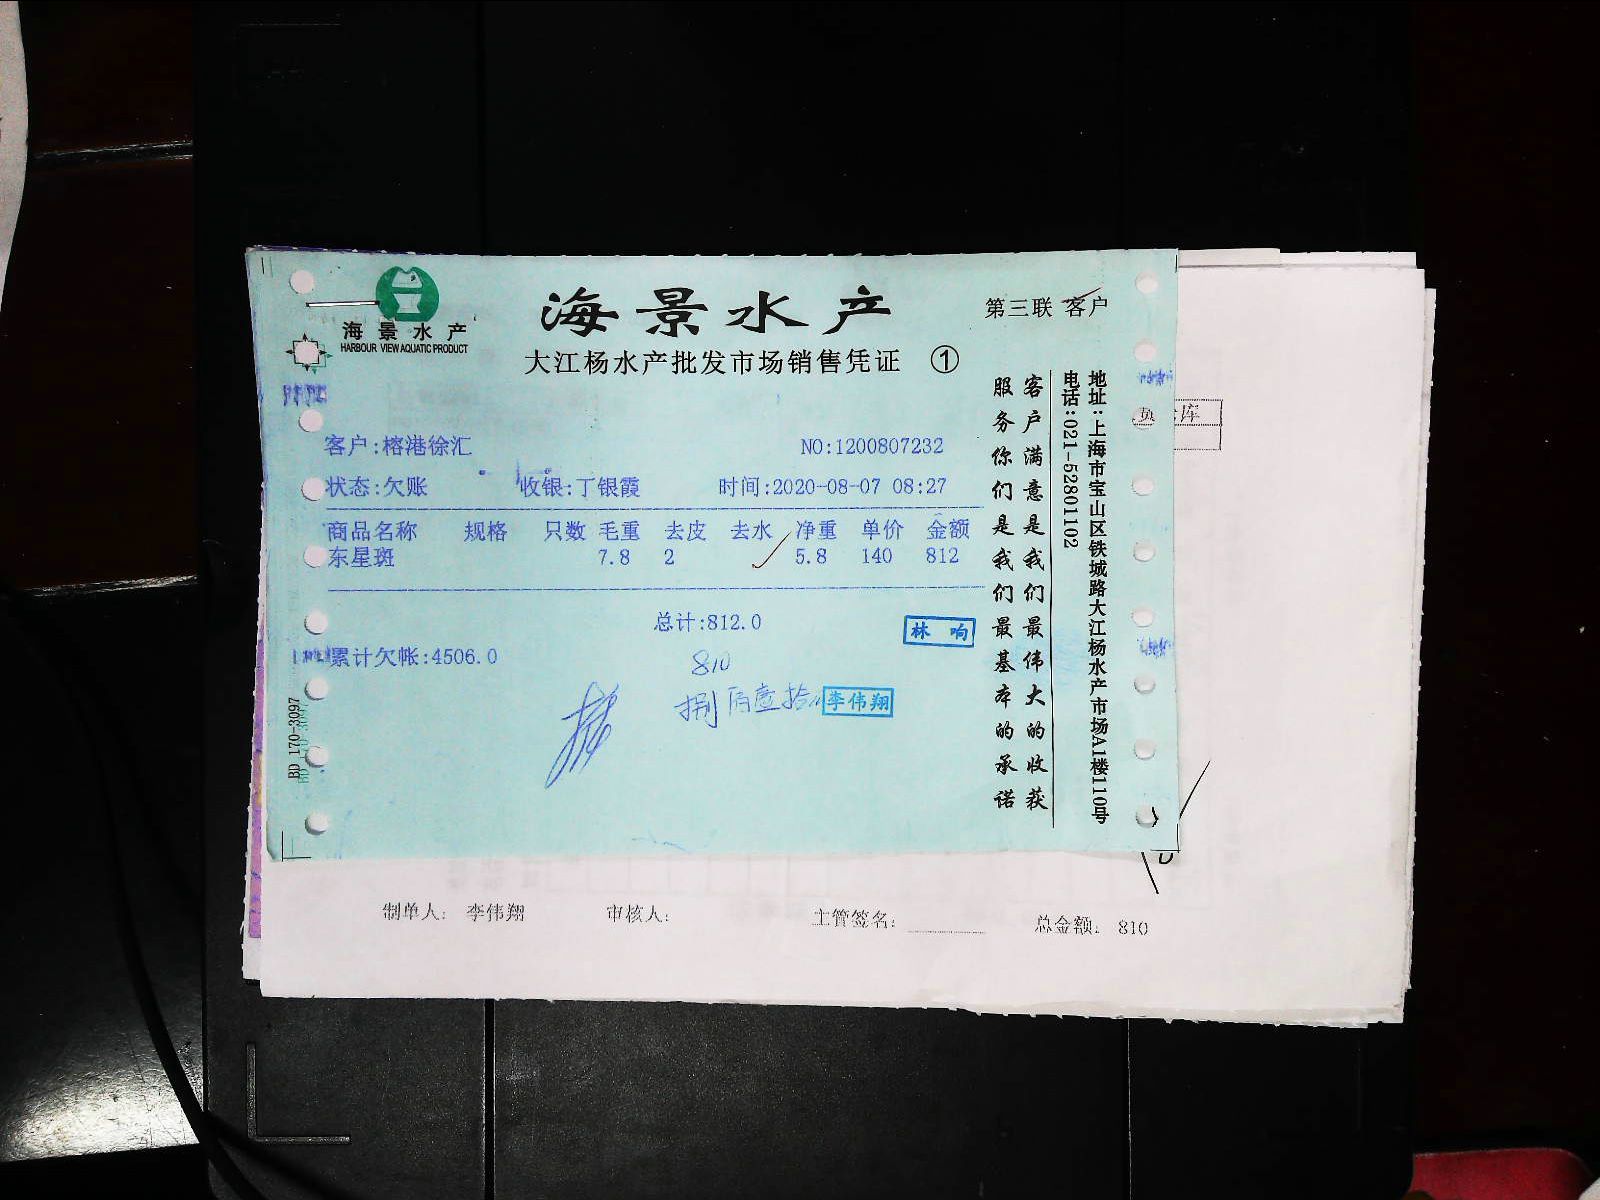 海景水产
HARBOUR VIEW AQUATIC PRODUCT
海景水产
第三联 客户
大江杨水产批发市场销售凭证 ①
客户:榕港徐汇 NO:1200807232
状态:欠账 收银:丁银霞 时间:2020-08-07 08:27
商品名称 规格 只数 毛重 去皮 去水 净重 单价 金额
东星斑 7.8 2 5.8 140 812
总计:812.0
林 响
累计欠帐:4506.0
810
捌佰壹拾
李伟翔
客户满意是我们最伟大的收获
服务你们是我们最基本的承诺
地址:上海市宝山区铁城路大江杨水产市场A1楼110号
电话:021-52801102
BD 170-3097
库
制单人: 李伟翔 审核人: 主管签名: 总金额: 810